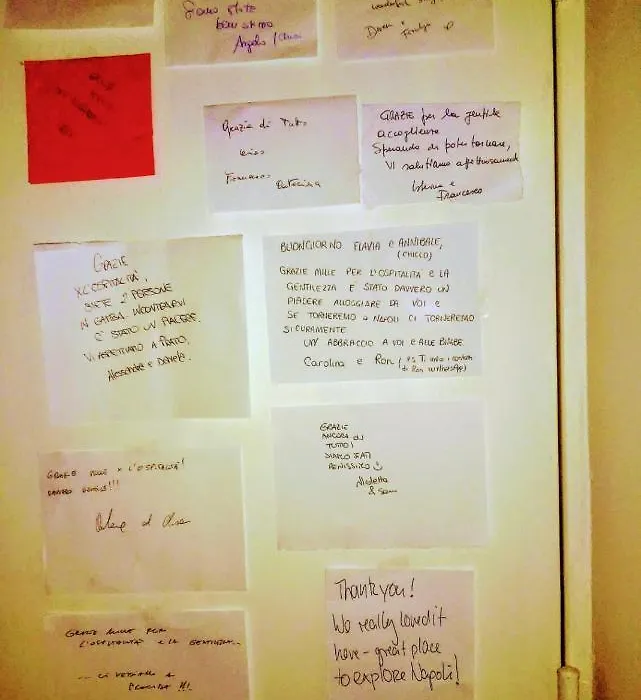 Siamo state
benissimo
Angela
GRAZIE per la gentile
accoglienza
Sperando di poter tornare,
Vi salutiamo affettuosamente
e
Francesco
Grazie di Tutto
Francesco
GRAZIE
X L'OSPITALITÀ,
SIETE 2 PERSONE
IN GAMBA. INCONTRARVI
E' STATO UN PIACERE.
VI ASPETTIAMO A PRATO.
Alessandro e Daniela.
BUONGIORNO FLAVIA E ANNIBALE,
(CHICCO)
GRAZIE MILLE PER L'OSPITALITÀ E LA
GENTILEZZA E STATO DAVVERO UN
PIACERE ALLOGGIARE DA VOI E
SE TORNEREMO A NAPOLI CI TORNEREMO
SICURAMENTE
UN ABBRACCIO A VOI E ALLE BIMBE
Carolina e Ron (PS Ti invio i contatti
di Ron WhatsApp)
GRAZIE
ANCORA DI
TUTTO!
SIAMO STATI
BENISSIMO
GRAZIE MILLE X L'OSPITALITÀ!
!!!
Thank you!
We really loved it
here - great place
to explore Napoli!
GRAZIE MILLE PER
L'OSPITALITÀ E LA GENTILEZZA...
... CI VEDIAMO A
PROCIDA !!!